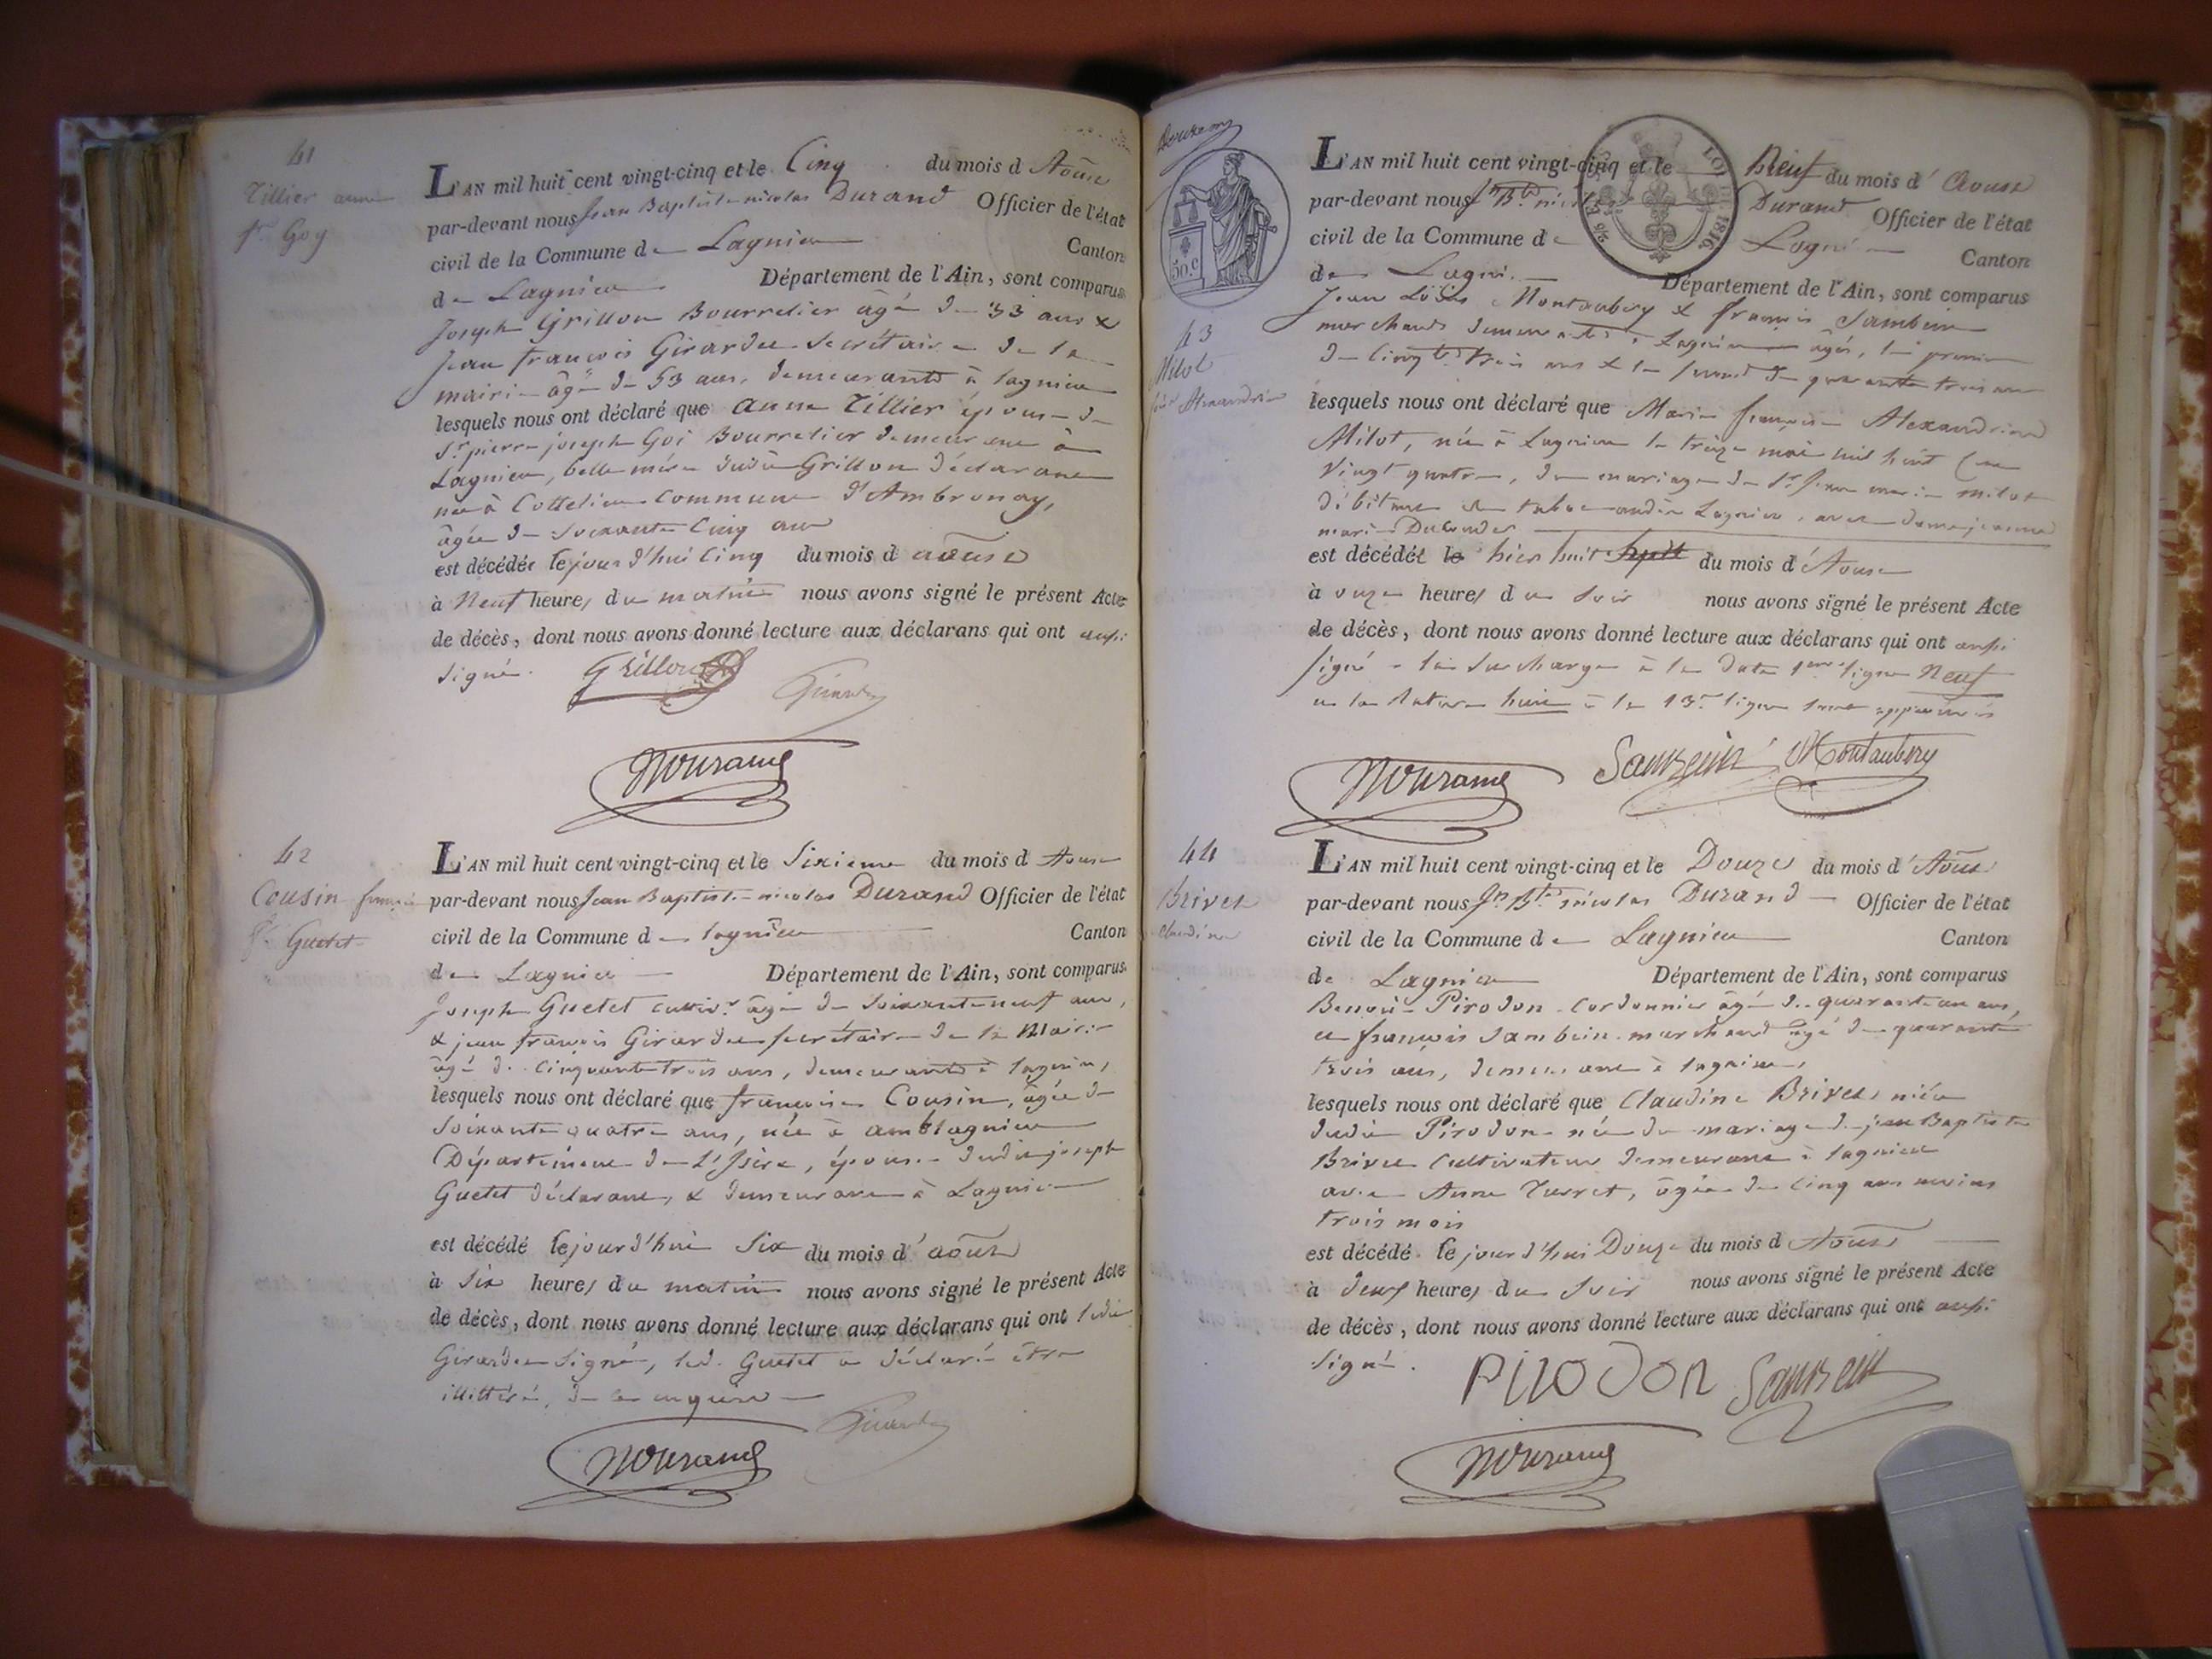 41
Tillier anne
fe Goy
L'AN mil huit cent vingt-cinq et le Cinq du mois d Aoust
par-devant nous Jean Baptiste nicolas Durand Officier de l'état
civil de la Commune de Lagnieu Canton
de Lagnieu Département de l'Ain, sont comparus
Joseph Grillon Bourrelier âgé de 33 ans &
Jean françois Girardet Secrétaire de la
mairie âgé de 53 ans, demeurants à lagnieu
lesquels nous ont déclaré que anne Tillier épouse de
Sr pierre joseph Goi Bourrelier demeurant à
Lagnieu, belle mère dudit Grillon déclarant
née à Cottelieu Commune d'Ambronay,
âgée de Soixante Cinq ans
est décédée le jour d'hui Cinq du mois d aoust
à Neuf heures du matin nous avons signé le présent Acte
de décès, dont nous avons donné lecture aux déclarans qui ont aussi
signé. Grillon Girardet
N Durand
42
Cousin françoise
fe Guetet
L'AN mil huit cent vingt-cinq et le Sixieme du mois d Aoust
par-devant nous Jean Baptiste nicolas Durand Officier de l'état
civil de la Commune de lagnieu Canton
de Lagnieu Département de l'Ain, sont comparus
Joseph Guetet cultivr âgé de Soixante neuf ans,
& jean françois Girardet secrétaire de la Mairie
âgé de Cinquante trois ans, demeurants à lagnieu,
lesquels nous ont déclaré que françoise Cousin, âgée de
Soixante quatre ans, née à amblagnieu
Département de L'Isère, épouse dudit joseph
Guetet déclarant, & demeurant à Lagnieu
est décédé le jour d'hui Six du mois d'aoust
à Six heures du matin nous avons signé le présent Acte
de décès, dont nous avons donné lecture aux déclarans qui ont ledit
Girardet Signé, led. Guetet a déclaré être
illittéré, de ce enquis
Girardet
N Durand
Douzem
50.C
LOI 1816
43
Milot
Alexandrine
L'AN mil huit cent vingt-cinq et le Neuf du mois d'Aoust
par-devant nous Jn Bte nicolas Durand Officier de l'état
civil de la Commune de Lagnieu Canton
de Lagnieu Département de l'Ain, sont comparus
Jean Louis Montaubery & françois Sambein
marchands demeurants à Lagnieu âgés, le premier
de Cinqte trois ans & le second de quarante trois ans
lesquels nous ont déclaré que Marie françoise Alexandrine
Milot, née à Lagnieu le treize mai mil huit Cent
Vingt quatre, du mariage de Sr Jean marie milot
débitant de tabac audit Lagnieu, avec dame jeanne
marie
est décédée le hier huit huit du mois d'Aoust
à onze heures du Soir nous avons signé le présent Acte
de décès, dont nous avons donné lecture aux déclarans qui ont aussi
signé - la Surcharge à la date 1ere ligne Neuf
et la Rature huit à la 13e ligne sont approuvés
N Durand Sambein Montaubery
44
Brivet
Claudine
L'AN mil huit cent vingt-cinq et le Douze du mois d'Aoust
par-devant nous Jn Bte nicolas Durand Officier de l'état
civil de la Commune de Lagnieu Canton
de Lagnieu Département de l'Ain, sont comparus
Benoit Pirodon Cordonnier âgé de quarante un ans,
et françois Sambein marchand âgé de quarante
trois ans, demeurant à lagnieu,
lesquels nous ont déclaré que Claudine Brivet nièce
dudit Pirodon née du mariage de jean Baptiste
Brivet Cultivateur demeurant à lagnieu
avec Anne Turret, âgée de Cinq ans moins
trois mois
est décédé le jour d'hui Douze du mois d Aoust
à deux heures du Soir nous avons signé le présent Acte
de décès, dont nous avons donné lecture aux déclarans qui ont aussi
signé. PIRODON Sambein
N Durand